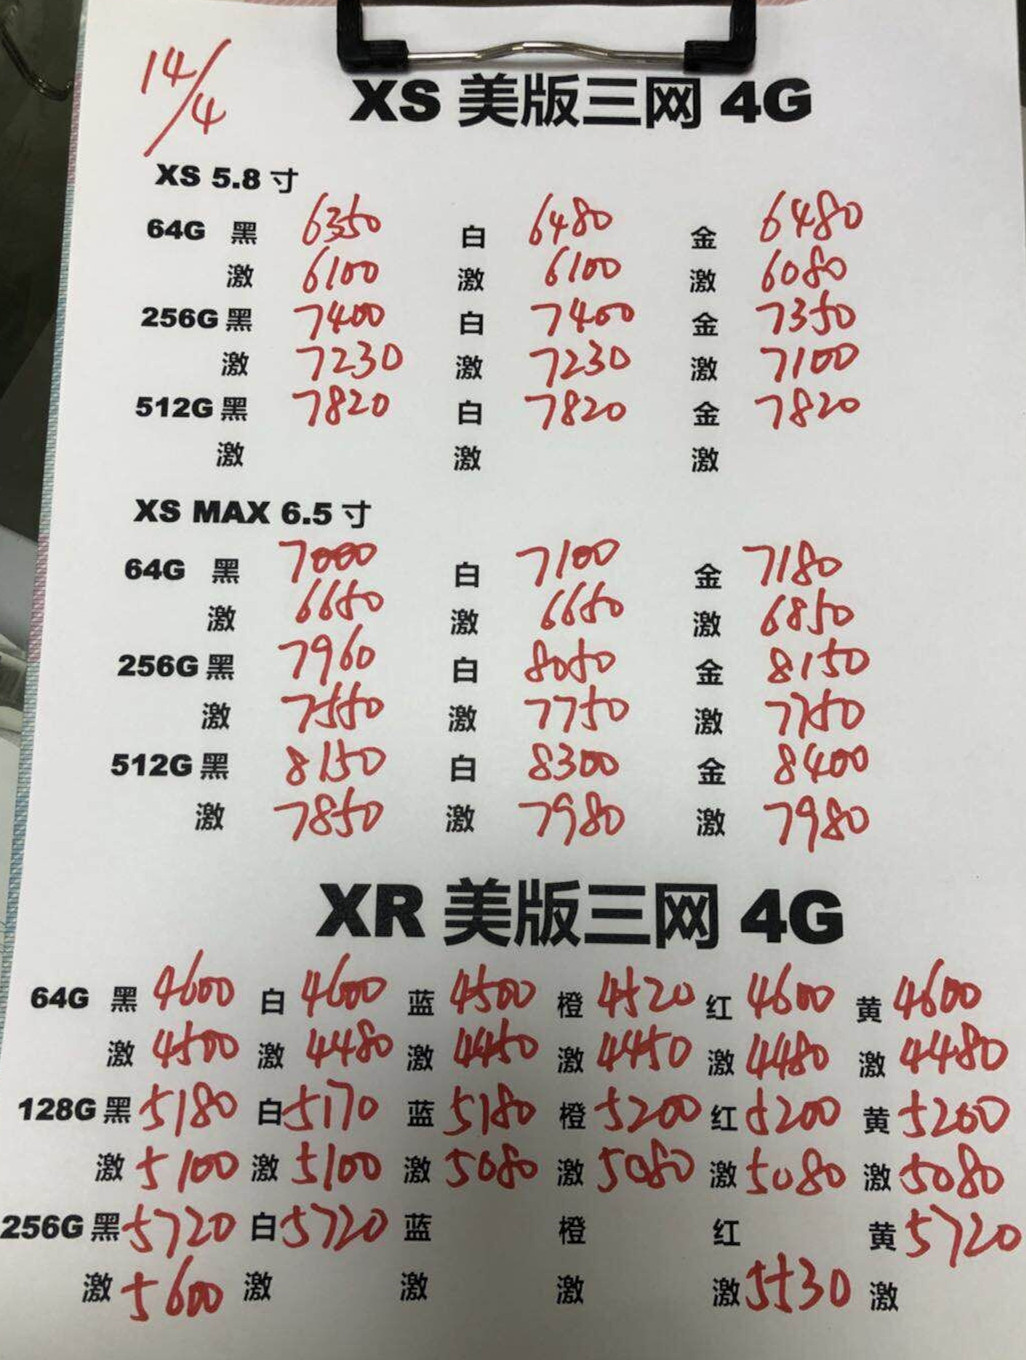 14/4
XS 美版三网 4G
XS 5.8 寸
64G 黑 6350 白 6480 金 6480
激 6100 激 6100 激 6080
256G 黑 7400 白 7400 金 7350
激 7230 激 7230 激 7100
512G 黑 7820 白 7820 金 7820
激 激 激
XS MAX 6.5 寸
64G 黑 7000 白 7100 金 7180
激 6650 激 6650 激 6850
256G 黑 7960 白 8050 金 8150
激 7550 激 7750 激 7750
512G 黑 8150 白 8300 金 8400
激 7850 激 7980 激 7980
XR 美版三网 4G
64G 黑 4600 白 4600 蓝 4500 橙 4520 红 4600 黄 4600
激 4500 激 4480 激 4450 激 4450 激 4480 激 4480
128G 黑 5180 白 5170 蓝 5180 橙 5200 红 5200 黄 5200
激 5100 激 5100 激 5080 激 5080 激 5080 激 5080
256G 黑 5720 白 5720 蓝 橙 红 黄 5720
激 5600 激 激 激 激 5530 激